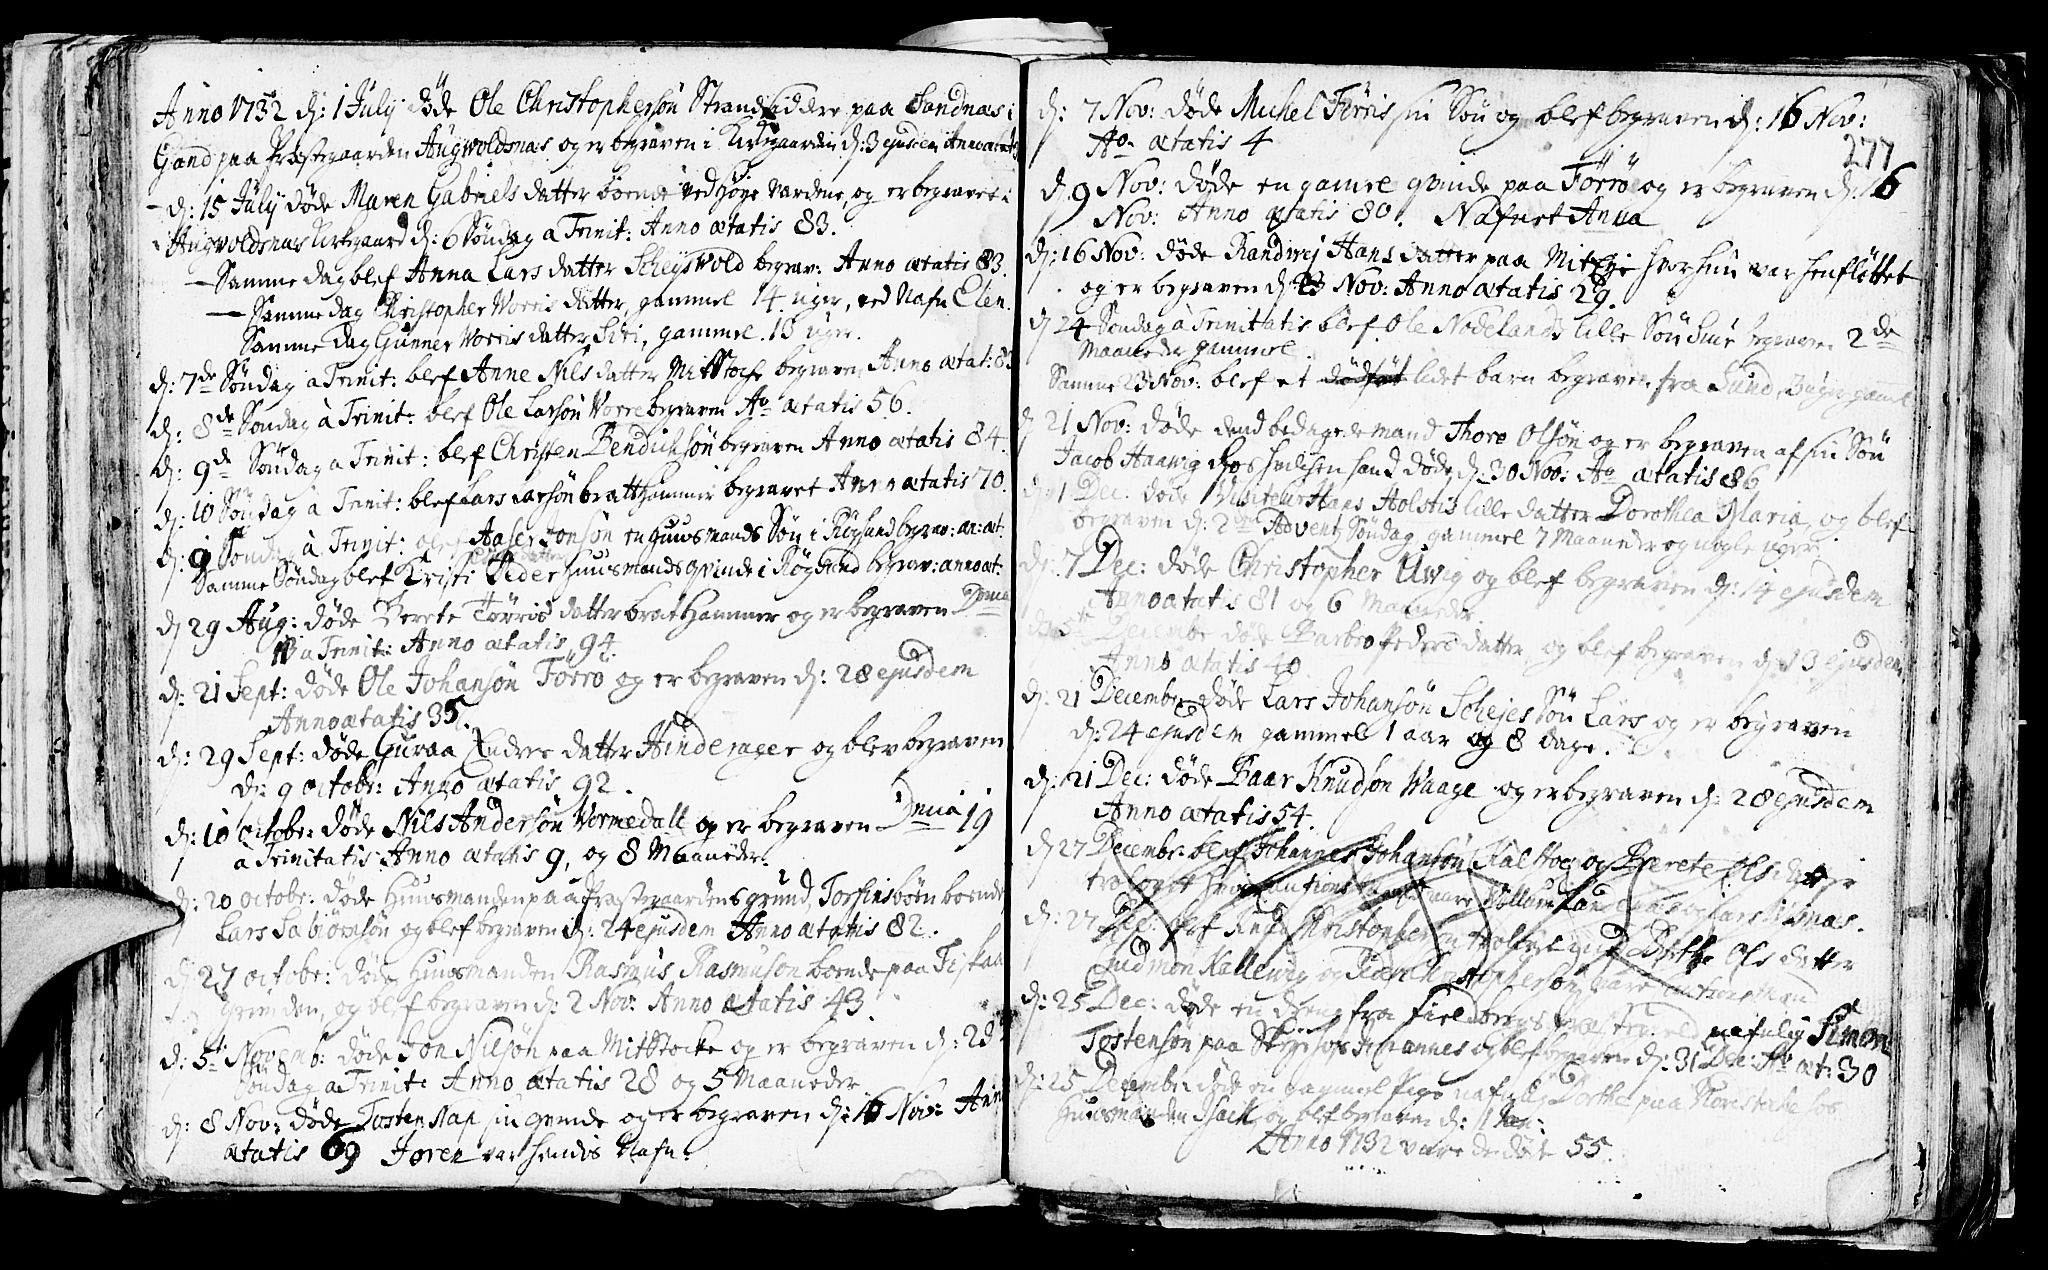 Anno 1732 d: 1 July döde Ole Christophersön Strandsiddere paa Sandnæs i
Gand paa Præstegaarden Augwoldsnæs og er begraven i Kirkegaarden d: 3 ejusdem Anno ætatis
d: 15 July döde Maren Gabriels datter boende ved Höye Vardene, og er begravet i
Augvoldsnæs Kirkegaard d: 6 Söndag a Trinit: Anno ætatis 83.
Samme dag blef Anna Lars datter begrav: Anno ætatis 83.
Samme dag Christopher Vorris datter, gammel 14 uger, ved Nafn Elen.
Samme dag Gunner Vorris datter Siri, gammel 18 uger.
d: 7de Söndag a Trinit: blef Anne Nils datter Mitstocke begraven Anno ætat: 83
d: 8de Söndag à Trinit: blef Ole Larsön Vorre begraven Ao ætatis 56.
d: 9de Söndag a Trinit: blef Christen Bendichsön begraven Anno ætatis 84.
d: 10 Söndag à Trinit: blef Lars Larsön bratthammer begravet Anno ætatis 70.
d: 9 Söndag à Trinit: blef Jonsön en huusmands Sön i Rögsund begrav: an: æt:
Samme Söndag blef Kristi Peder huusmands qvinde i Rögsund begrav: anno æt:
d 29 Aug: döde Berete Torris datter brathammer og er begraven Dnica
a Trinit: Anno ætatis 94.
d: 21 Sept: döde Ole Johansön Förrö og er begraven d: 28 ejusdem
Anno ætatis 35.
d: 29 Sept: döde Guraa Endres datter Hinderager og blev begraven
d: 9 octobr: Anno ætatis 92.
d: 10 october döde Nils Andersön Vormedall og er begraven Dnica 19
a Trinitatis Anno ætatis 9, og 8 Maaneder.
d: 20 octobr: döde Huusmanden paa Præstegaardens grund, Torfinsböen boende
Lars Sabiörnsön og blef begraven d: 24 ejusdem Anno ætatis 82.
d: 27 octobr: döde Huusmanden Rasmus Rasmuson boende paa
grunden, og blef begraven d: 2 Nov: Anno ætatis 43.
d: 5te Novemb: döde Jon Nilsön paa Mitstocke og er begraven d: 2
Söndag a Trinit: Anno ætatis 28 og 5 Maaneder
d: 8 Nov: döde Tosten Nap sin qvinde og er begraven d: 16 Nov: Anno
ætatis 69 Joren var hendis Nafn.
277
d: 7 Nov: döde Michel Förris sin Sön og blef begraven d: 16 Nov:
Ao ætatis 4
d 9 Nov: döde en gamel qvinde paa Förrö og er begraven d: 16
Nov: Anno ætatis 80. Nafnet Anna
d: 16 Nov: döde Randwej Hans datter paa hvor hun var henflöttet
og er begraven d 23 Nov: Anno ætatis 29.
d 24 Söndag à Trinitatis blef Ole Nödelands lille Sön begraven 2de
Maaneder gammel.
Samme 23 Nov: blef et lidet barn begraven fra Sund, 3 uger gamel
d 21 Nov: döde dend bedagede mand Thore Olsön og er begraven af sin Sön
Jacob Haawig döde d: 30 Nov: Ao ætatis 86
d: 1 Dec: döde Visiteur Hans Holstis lille datter Dorothea Maria, og blef
begraven d: 2den Advents Söndag, gammel 7 Maaneder og nogle uger.
d: 7 Dec: döde Christopher Uwig og blef begraven d: 14 ejusdem
Anno ætatis 81 og 6 Maaneder.
5te Decembr döde Barbro Peders datter og blef begraven d: 13 ejusdem
Anno ætatis 40
d: 21 Decembr döde Lars Johansön Schejes Sön Lars og er begraven
d: 24 ejusdem gammel 1 aar og 8 dage.
d: 21 Dec: döde Baar Knudson Waage og er begraven d: 28 ejusdem
Anno ætatis 54.
d 27 Decembr: blef Johannes Johansön Kalstoe og Berete Ols datter
trolovet cautions vare
d: 27 Dec: blef Knud Christophersen trolovet med Birthe Ols datter
Gudmon Hallewig og Christophersön vare cautions mænd
d: 25 Dec: döde en dreng fra Fieldbergs præstegield nafnlig Simon
Tostensön paa Johannes og blef begraven d: 31 Dec: Ao æt: 30
d: 25 Decembr döde en gammel Pige nafnlig Dorthe paa hos
Huusmanden Isach, og blef begraven d: 1 Jan:
Anno 1732 vare de döde 55.